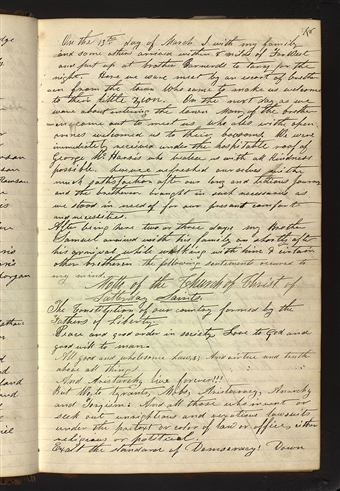 16
On the 13th day of March I with my family
and some other arrived within 8 miles of Far West
and put up at brother Barnerds to tarry for the
night. Here we were met by an escort of breth
ren from the town who came to make us welcome
to their little Zion. On the next day as we
were about entering the town Many of the brethr
en came out to meet us who also with open
armes welcomed us to their boosoms. We were
immediately received under the hospitable roof of
George W. Harris who treated us with all kindness
possible. here we refreshed ourselves with
much sattisfaction after our long and tedious journey
and the bretheren braught in such necessaries as
we stood in need of for our present comfort
and necessities.
After being here two or three days my Brother
Samuel arrived with his family an shortly after
his arrival while walking with him & certain
other bretheren the following sentements occured to
my mind
Motto of the Church of Christ of
Latterday Saints.
The Constitution of our country formed by the
Fathers of Liberty.
Peace and good order in society Love to God and
good will to man.
All good and wholesome law's; And virtue and truth
above all things
And Aristarchy live forever!!!
But Wo, to tyrants, Mobs, Aristocracy, Anarchy
and Toryism: And all those who invent or
seek out unrighteous and vexatious lawsuits
under the pretext or color of law or office, either
religious or political.
Exalt the standard of Democracy! Down